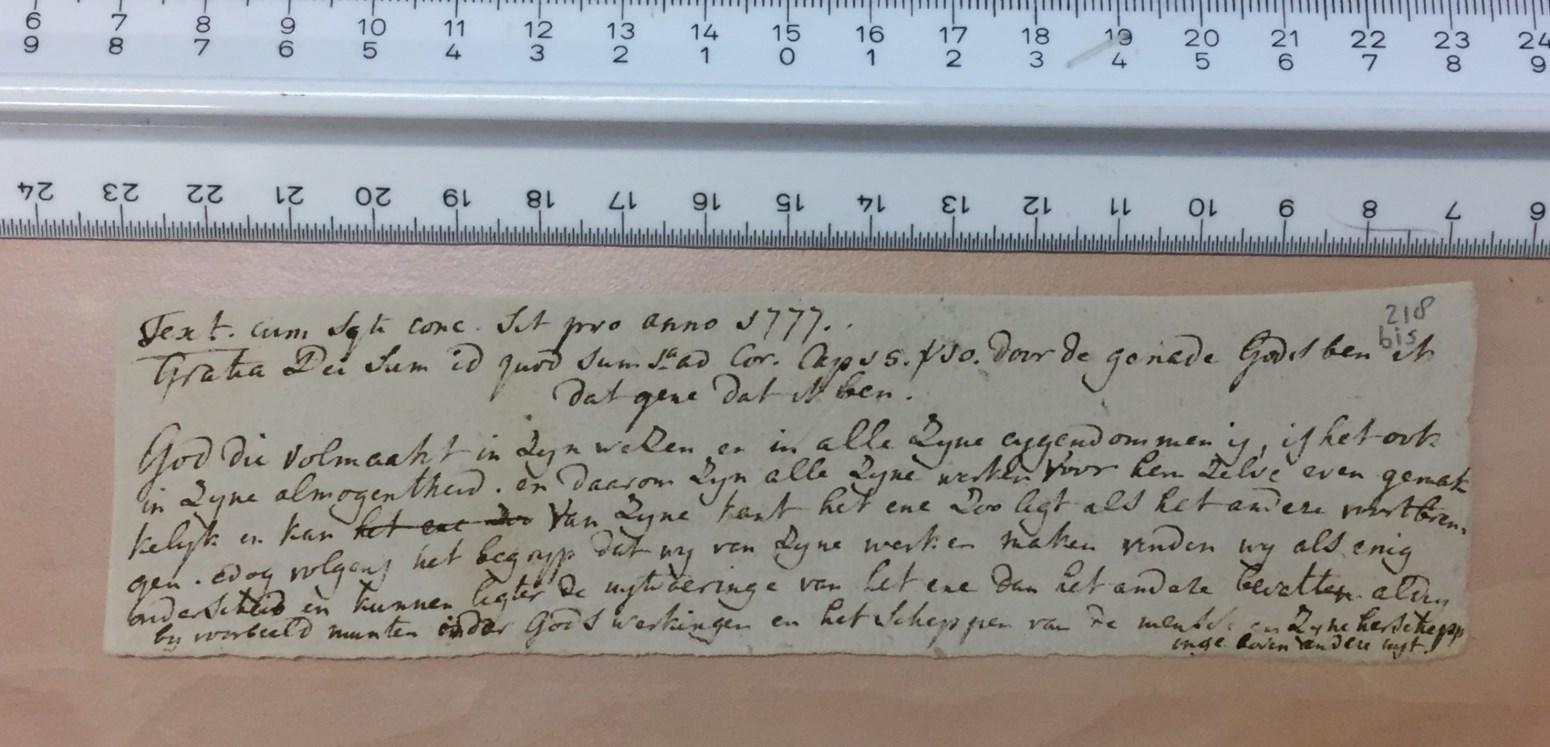 6 7 8 9 10 11 12 13 14 15 16 17 18 19 20 21 22 23 24
9 8 7 6 5 4 3 2 1 0 1 2 3 4 5 6 7 8 9
24 23 22 21 20 19 18 17 16 15 14 13 12 11 10 9 8 7 6
218
bis
Text. cum sqti conc. Sit pro anno 1777.
Gratia Dei Sum id quod Sum 1a ad Cor. Cap 15. ℣ 10. door de genade Gods ben ik
dat gene dat ik ben.
God die volmaakt in Zyn weZen en in alle Zyne eygendommen is, is het ook
in Zyne almogentheid. en daarom Zyn alle Zyne werken voor hem Zelve even gemak
kelyk en kan het ene Zoo van Zyne kant het ene Zoo ligt als het andere voortbren.
gen. edog volgens het begryp dat wy van Zyne werken maken vinden wy als enig
onderscheid en kunnen ligter de uytvoeringe van het ene dan het andere bevatten. aldus
by voorbeeld munten onder Gods werkingen en het scheppen van de mensch en Zyne herschepp
inge boven andere uyt.